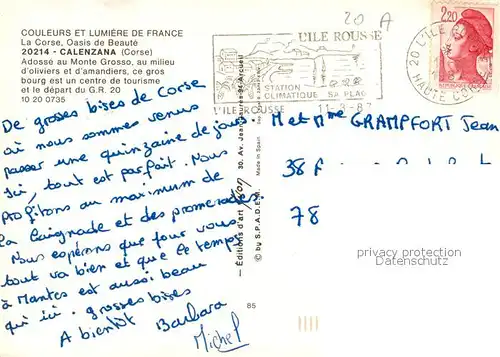 COULEURS ET LUMIÈRE DE FRANCE
La Corse, Oasis de Beauté
20214 - CALENZANA (Corse)
Adossé au Monte Grosso, au milieu
d'oliviers et d'amandiers, ce gros
bourg est un centre de tourisme
et le départ du G.R. 20
10 20 0735
De grosses bises de Corse
où nous sommes venus
passer une quinzaine de jours.
Ici, tout est parfait. Nous
profitons au maximum de
la baignade et des promenades.
Nous espérons que pour vous
tout va bien et que le temps
à Mantes est aussi beau
qu'ici. grosses bises
A bientôt Barbara
Michel
85
Editions d'art
30. Av. Jean Jaurès 94-Arcueil
Made in Spain
© by S.P.A.D.E.M.
20 A
L'ILE ROUSSE
STATION
CLIMATIQUE SA PLAGE
L'ILE ROUSSE
11-3-87
20 L'ILE
HAUTE CORSE
2,20
M et Mme GRAMPFORT Jean
38
78
privacy protection
watermark